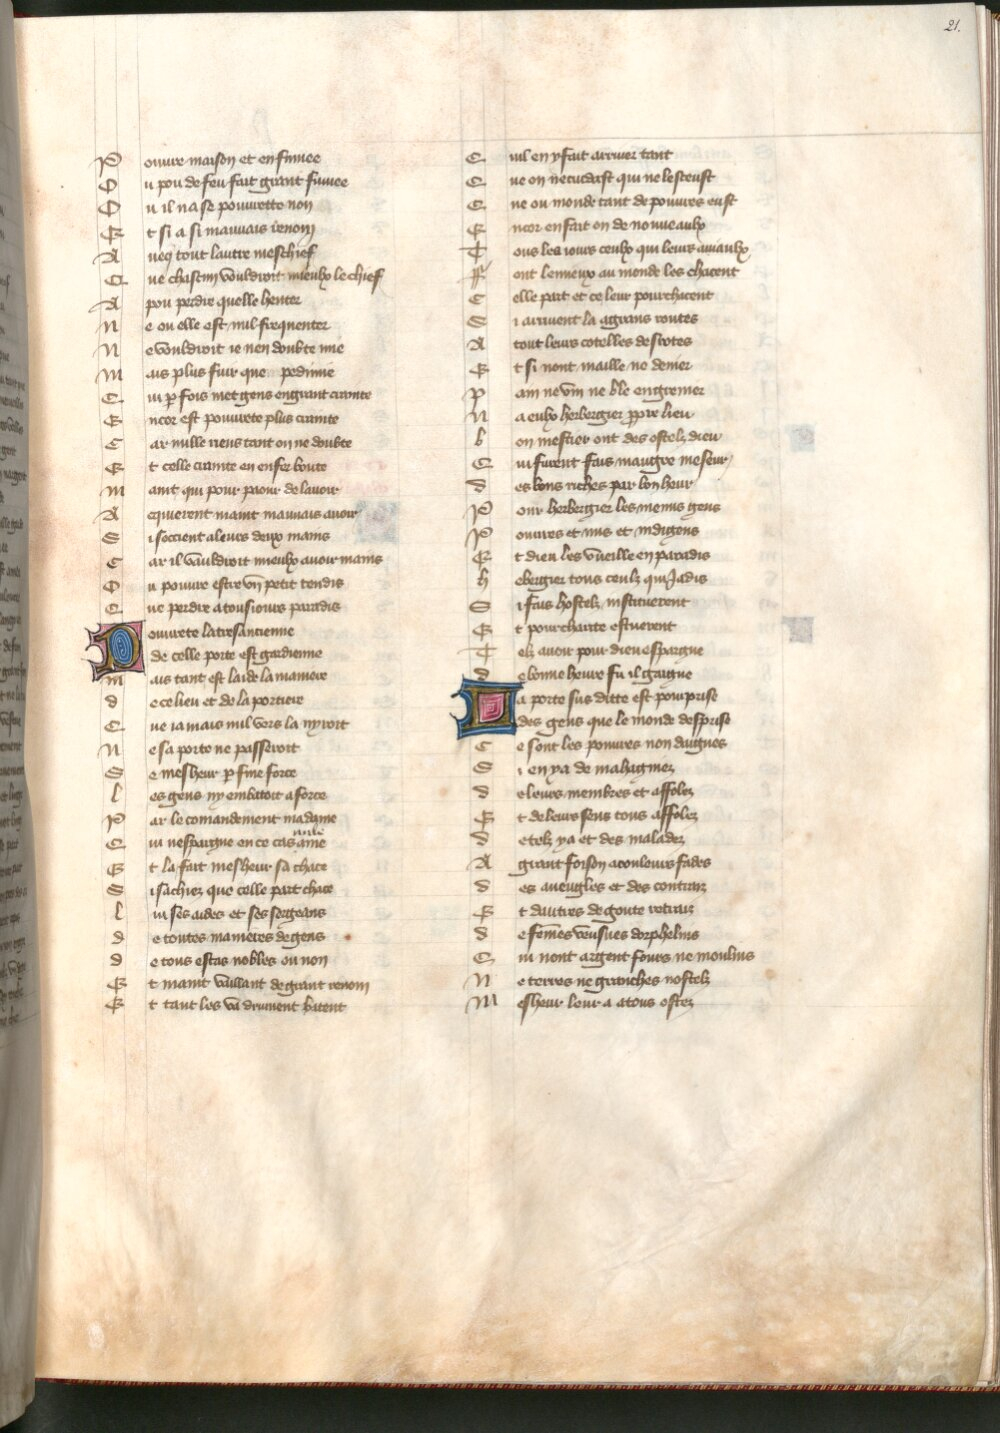 21.
Pouure maison et enfumee
Ou pou de feu fait grant fumee
Ou il na se pourette non
Et si a si mauuais renom
Auec tout lautre meschief
Que chascun vouldroit mieulx le chief
A pou perdre quelle henter
Ne ou elle est nul frequenter
Ne vouldroit ie nen doubte mie
Mais plus fuir que pedimie
Qui p fois met gens en grant crainte
Encor est pourete plus crainte
Car nulle riens tant on ne doubte
Et celle crainte en enfer boute
Maint qui pour paour de lauoir
Acquierent maint mauuais auoir
Si soccient a leurs deux mains
Car il vauldroit mieulx auoir mains
Ou pouure estre vn petit tendis
Que perdre a tousiours paradis
Pourete la tresancienne
de celle porte est gardienne
Mais tant est laide la maniere
de ce lieu et de la portiere
Que iamais nul vers la nyroit
Ne sa porte ne passeroit
Se mesheur p fine force
les gens ny embatoit a force
Par le comandement madame
Qui nespargne en ce cas ame
nulle
Et la fait mesheur sa chace
Si sachiez que celle part chace
lui ses aides et ses sergeans
de toutes manieres de gens
de tous estas nobles ou non
Et maint vaillant de grant renom
Et tant les va drument batent
Quil en y fait arriuer tant
Que on ne cuidast qui ne le sceust
Que ou monde tant de pouures eust
Encor en fait on de nouueaulx
Tous les iours ceulx qui leurs auiaulx
ffont le mieux au monde les chacent
Celle part et ce leur pourchacent
Si arriuent la a grans routes
A tout leurs cotelles desrotes
Et si nont maille ne denier
Pain ne vin ne ble en grenier
Na eulx herbergier ppre lieu
bon mestier ont des ostelz dieu
Qui furent fais maugre meseur
des bons riches par bon heur
Pour herbergier les menus gens
Pouures et nus et indigens
Et dieu les vueille en paradis
hebergier tous ceulx qui Jadis
Si fais hostelz instituerent
Et pour charite estuerent
Tel auoir pour dieu espargne
de bonne heure fu il gaigne
La porte sus ditte est pourprise
des gens que le monde desprise
Ce sont les pouures non daignes
Si en ya de mahagniez
de leurs membres et affolez
Et de leurs sens tous affolez
de telz ya et des malades
A grant foison a couleurs fades
des aueugles et des contraiz
Et dautres de goute retraiz
de femes veufues dorphelins
Qui nont argent fours ne moulins
Ne terres ne granches nostelz
Mesheur leur a a tous ostez